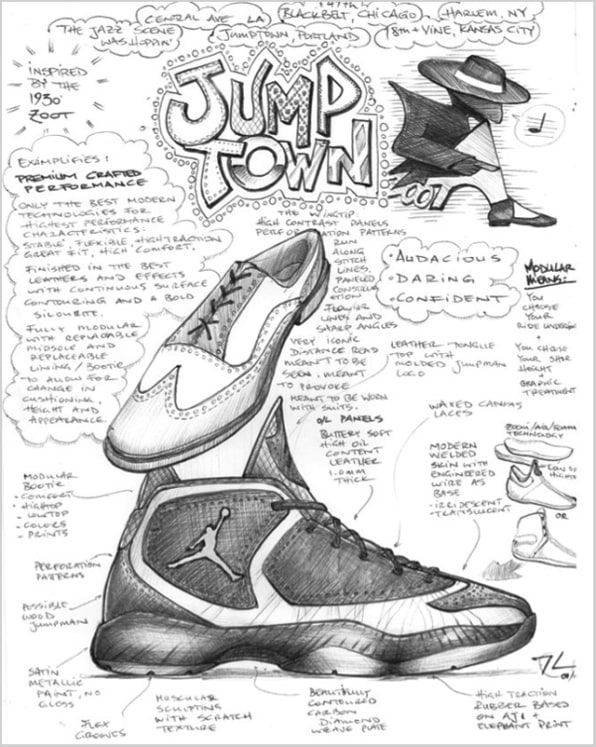 47th &
CENTRAL AVE LA
BLACKBELT, CHICAGO
HARLEM, NY
THE JAZZ SCENE
WAS HOPPIN'
JUMPTOWN, PORTLAND
18th + VINE, KANSAS CITY
INSPIRED
BY THE
1930'
ZOOT
JUMP
TOWN
001
EXIMPLIFIES:
PREMIUM CRAFTED
PERFORMANCE
ONLY THE BEST MODERN
TECHNOLOGIES FOR
HIGHEST PERFORMANCE
CHARACTERISTICS:
STABLE, FLEXIBLE, HIGH TRACTION
GREAT FIT, HIGH COMFORT.
FINISHED IN THE BEST
LEATHERS AND EFFECTS
WITH CONTINUOUS SURFACE
CONTOURING AND A BOLD
SILOUETTE.
FULLY MODULAR
WITH REPLACABLE
MIDSOLE AND
REPLACEABLE
LINING / BOOTIE
TO ALLOW FOR
CHANGE IN
CUSHIONING,
HEIGHT AND
APPEARANCE.
THE WINGTIP:
HIGH CONTRAST PANELS
PERFORATION PATTERNS
RUN
ALONG
STITCH
LINES.
PANELED
CONSTRUCT
ION
FLOWING
LINES AND
SHARP ANGLES
VERY ICONIC
DISTANCE READ
MEANT TO BE
SEEN. MEANT
TO PROVOKE
MEANT TO BE WORN
WITH SUITS.
• AUDACIOUS
• DARING
• CONFIDENT
MODULAR
MEANS:
YOU
CHOOSE
YOUR
RIDE UNDERFOOT
+
YOU CHOOSE
YOUR SHOE
HEIGHT
+
GRAPHIC
TREATMENT
LEATHER TONGUE
TOP WITH
MOLDED JUMPMAN
LOGO
O/L PANELS
BUTTERY SOFT
HIGH OIL
CONTENT
LEATHER
1.0mm
THICK
WAXED CANVAS
LACES
MODERN
WELDED
SKIN WITH
ENGINEERED
WIRE AS
BASE
- IRRIDESCENT
- TRANSLUCENT
ZOOM/AIR/FOAM
TECHNOLOGY
OR
MODULAR
BOOTIE
• COMFORT
• HIGHTOP
- LOWTOP
- COLORS
- PRINTS
PERFORATION
PATTERNS
POSSIBLE
WOOD
JUMPMAN
SATIN
METALLIC
PAINT, NO
GLOSS
FLEX
GROOVES
MUSCULAR
SCULPTING
WITH SCRATCH
TEXTURE
BEAUTIFULLY
CONTOURED
CARBON
DIAMOND
WEAVE PLATE
HIGH TRACTION
RUBBER BASED
ON AJ1 +
ELEPHANT PRINT